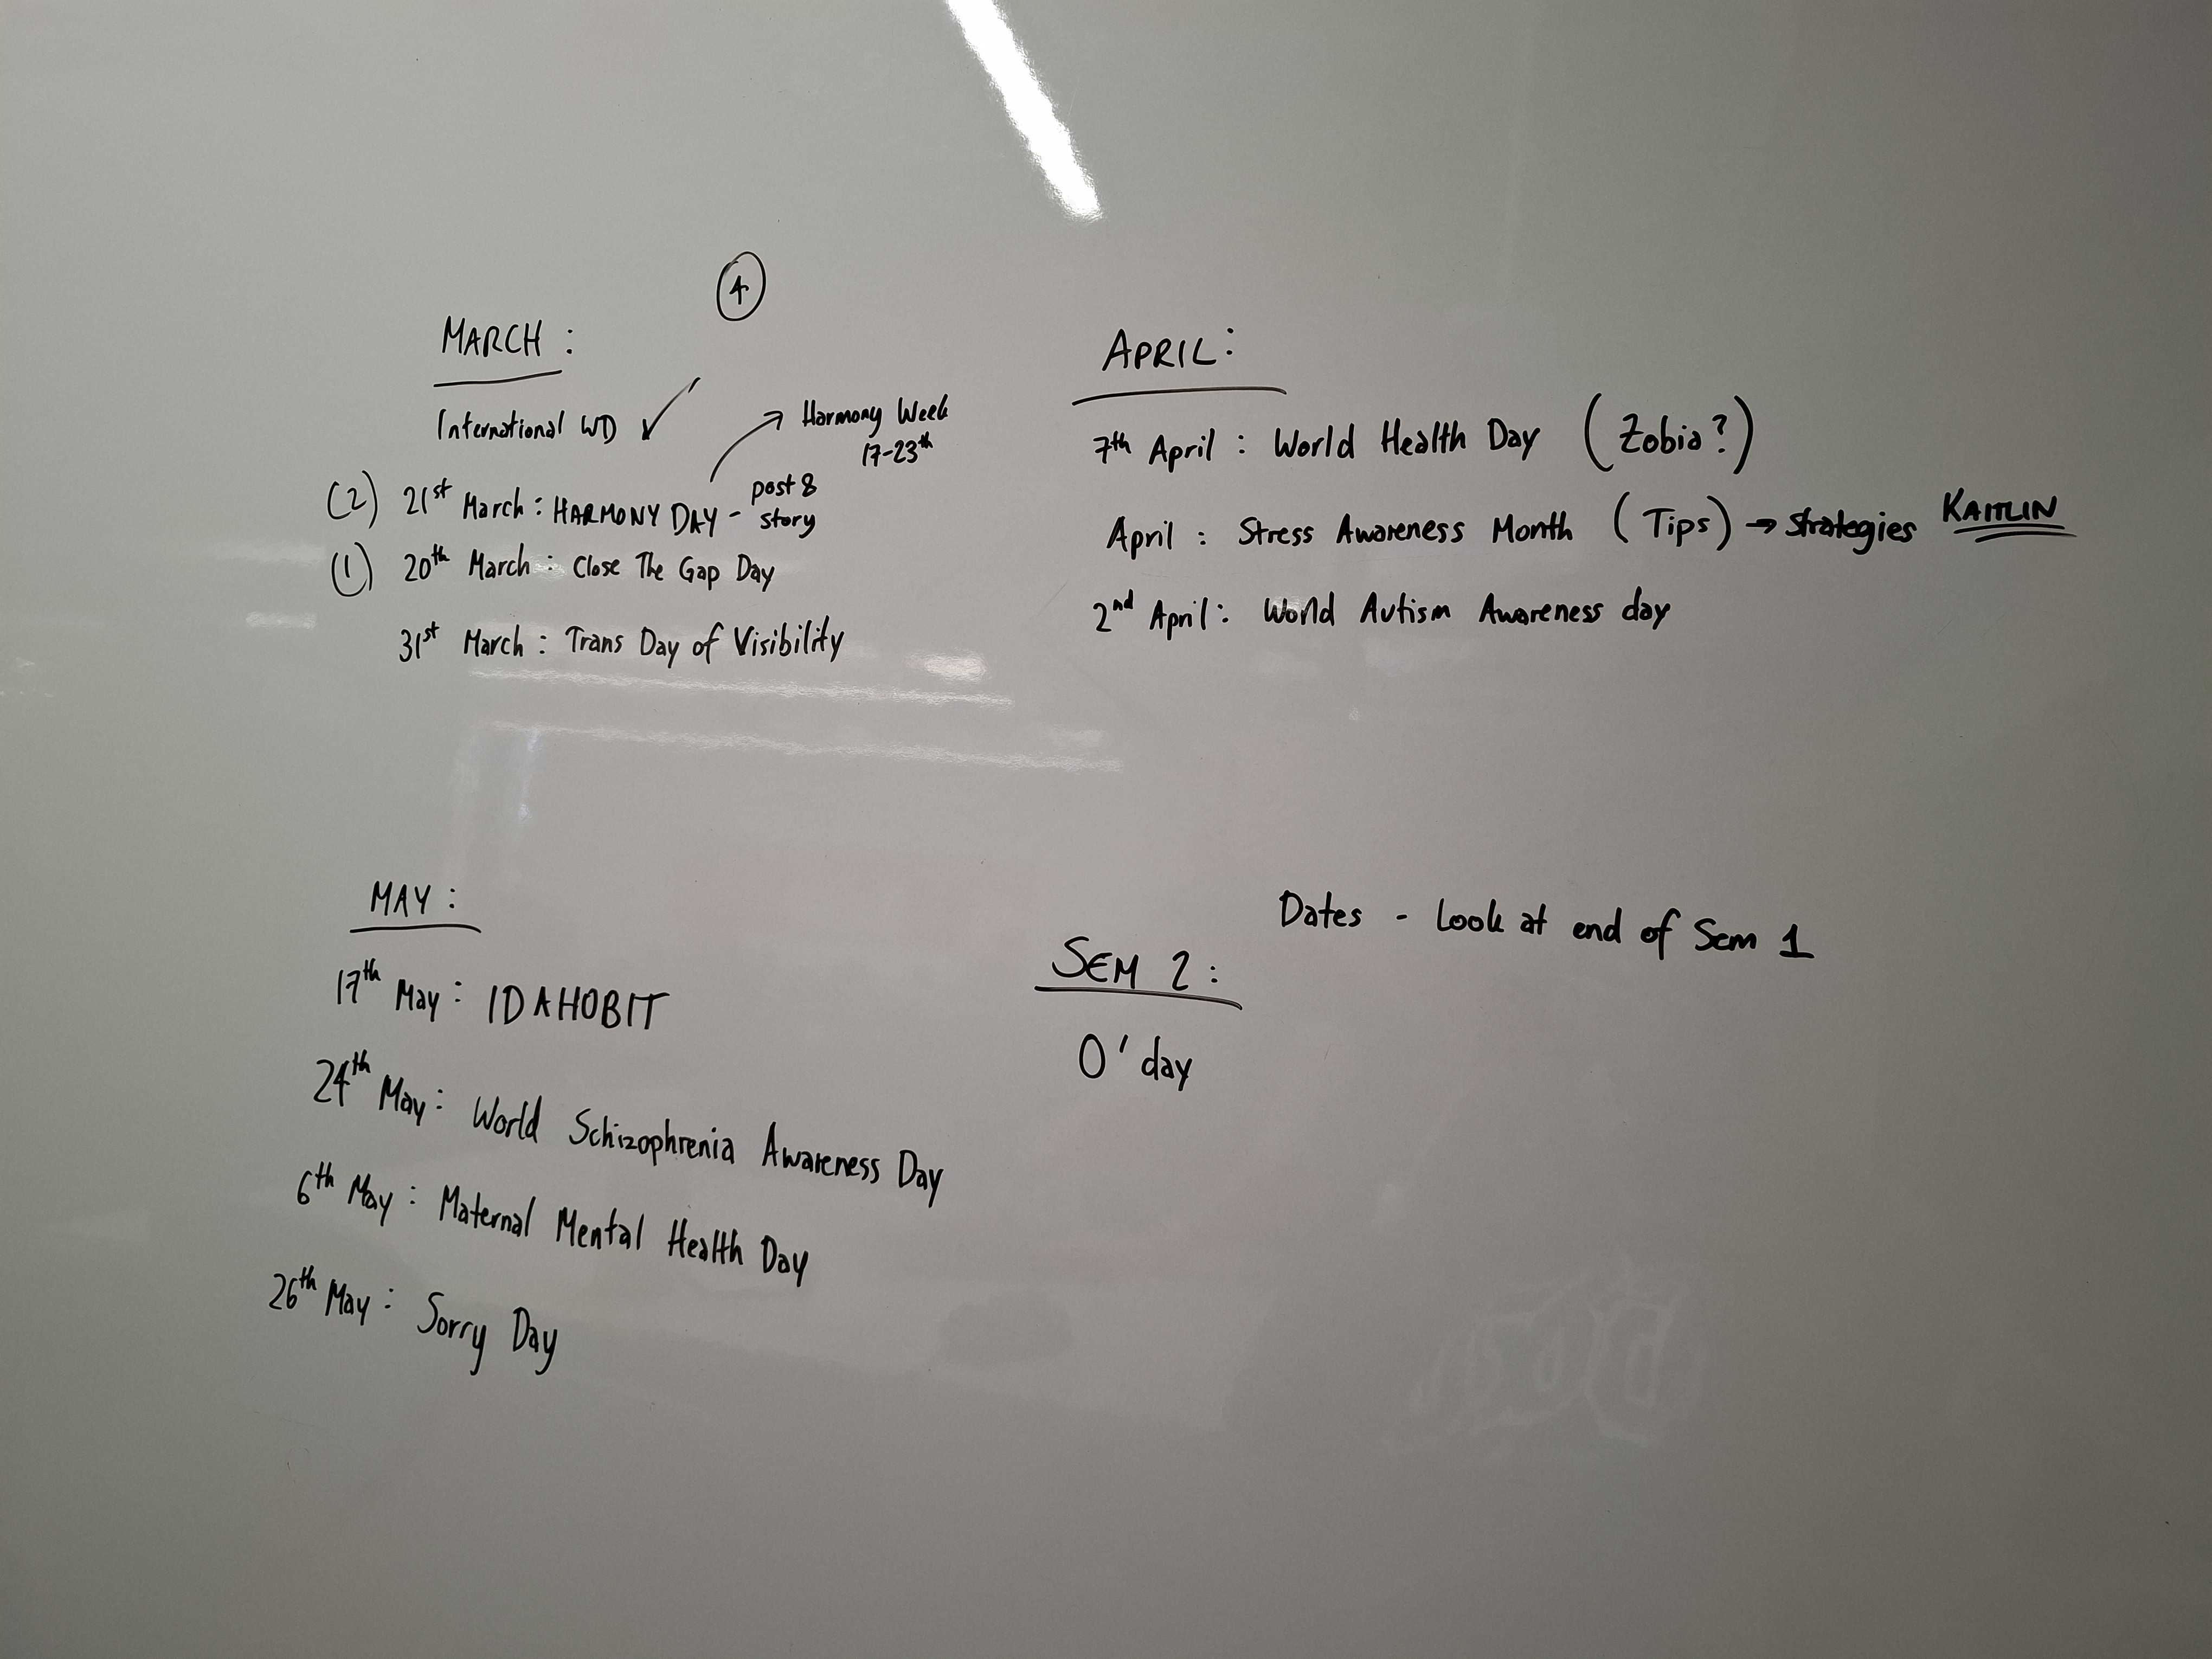 4
MARCH :
International WD ✓
Harmony Week
17-23rd
(2) 21st March : HARMONY DAY - post &
story
(1) 20th March : Close The Gap Day
31st March : Trans Day of Visibility
APRIL :
7th April : World Health Day (Zobia?)
April : Stress Awareness Month (Tips) → strategies KAITLIN
2nd April : World Autism Awareness day
MAY :
17th May : IDAHOBIT
24th May : World Schizophrenia Awareness Day
6th May : Maternal Mental Health Day
26th May : Sorry Day
Dates - Look at end of Sem 1
SEM 2 :
O'day